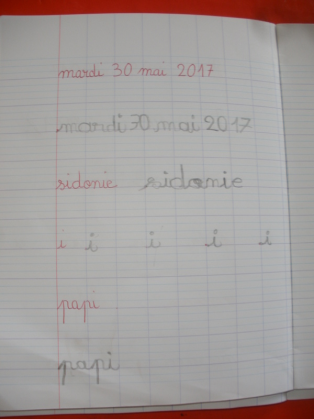 mardi 30 mai 2017
mardi 30 mai 2017
sidonie sidonie
i i i i i
papi
papi